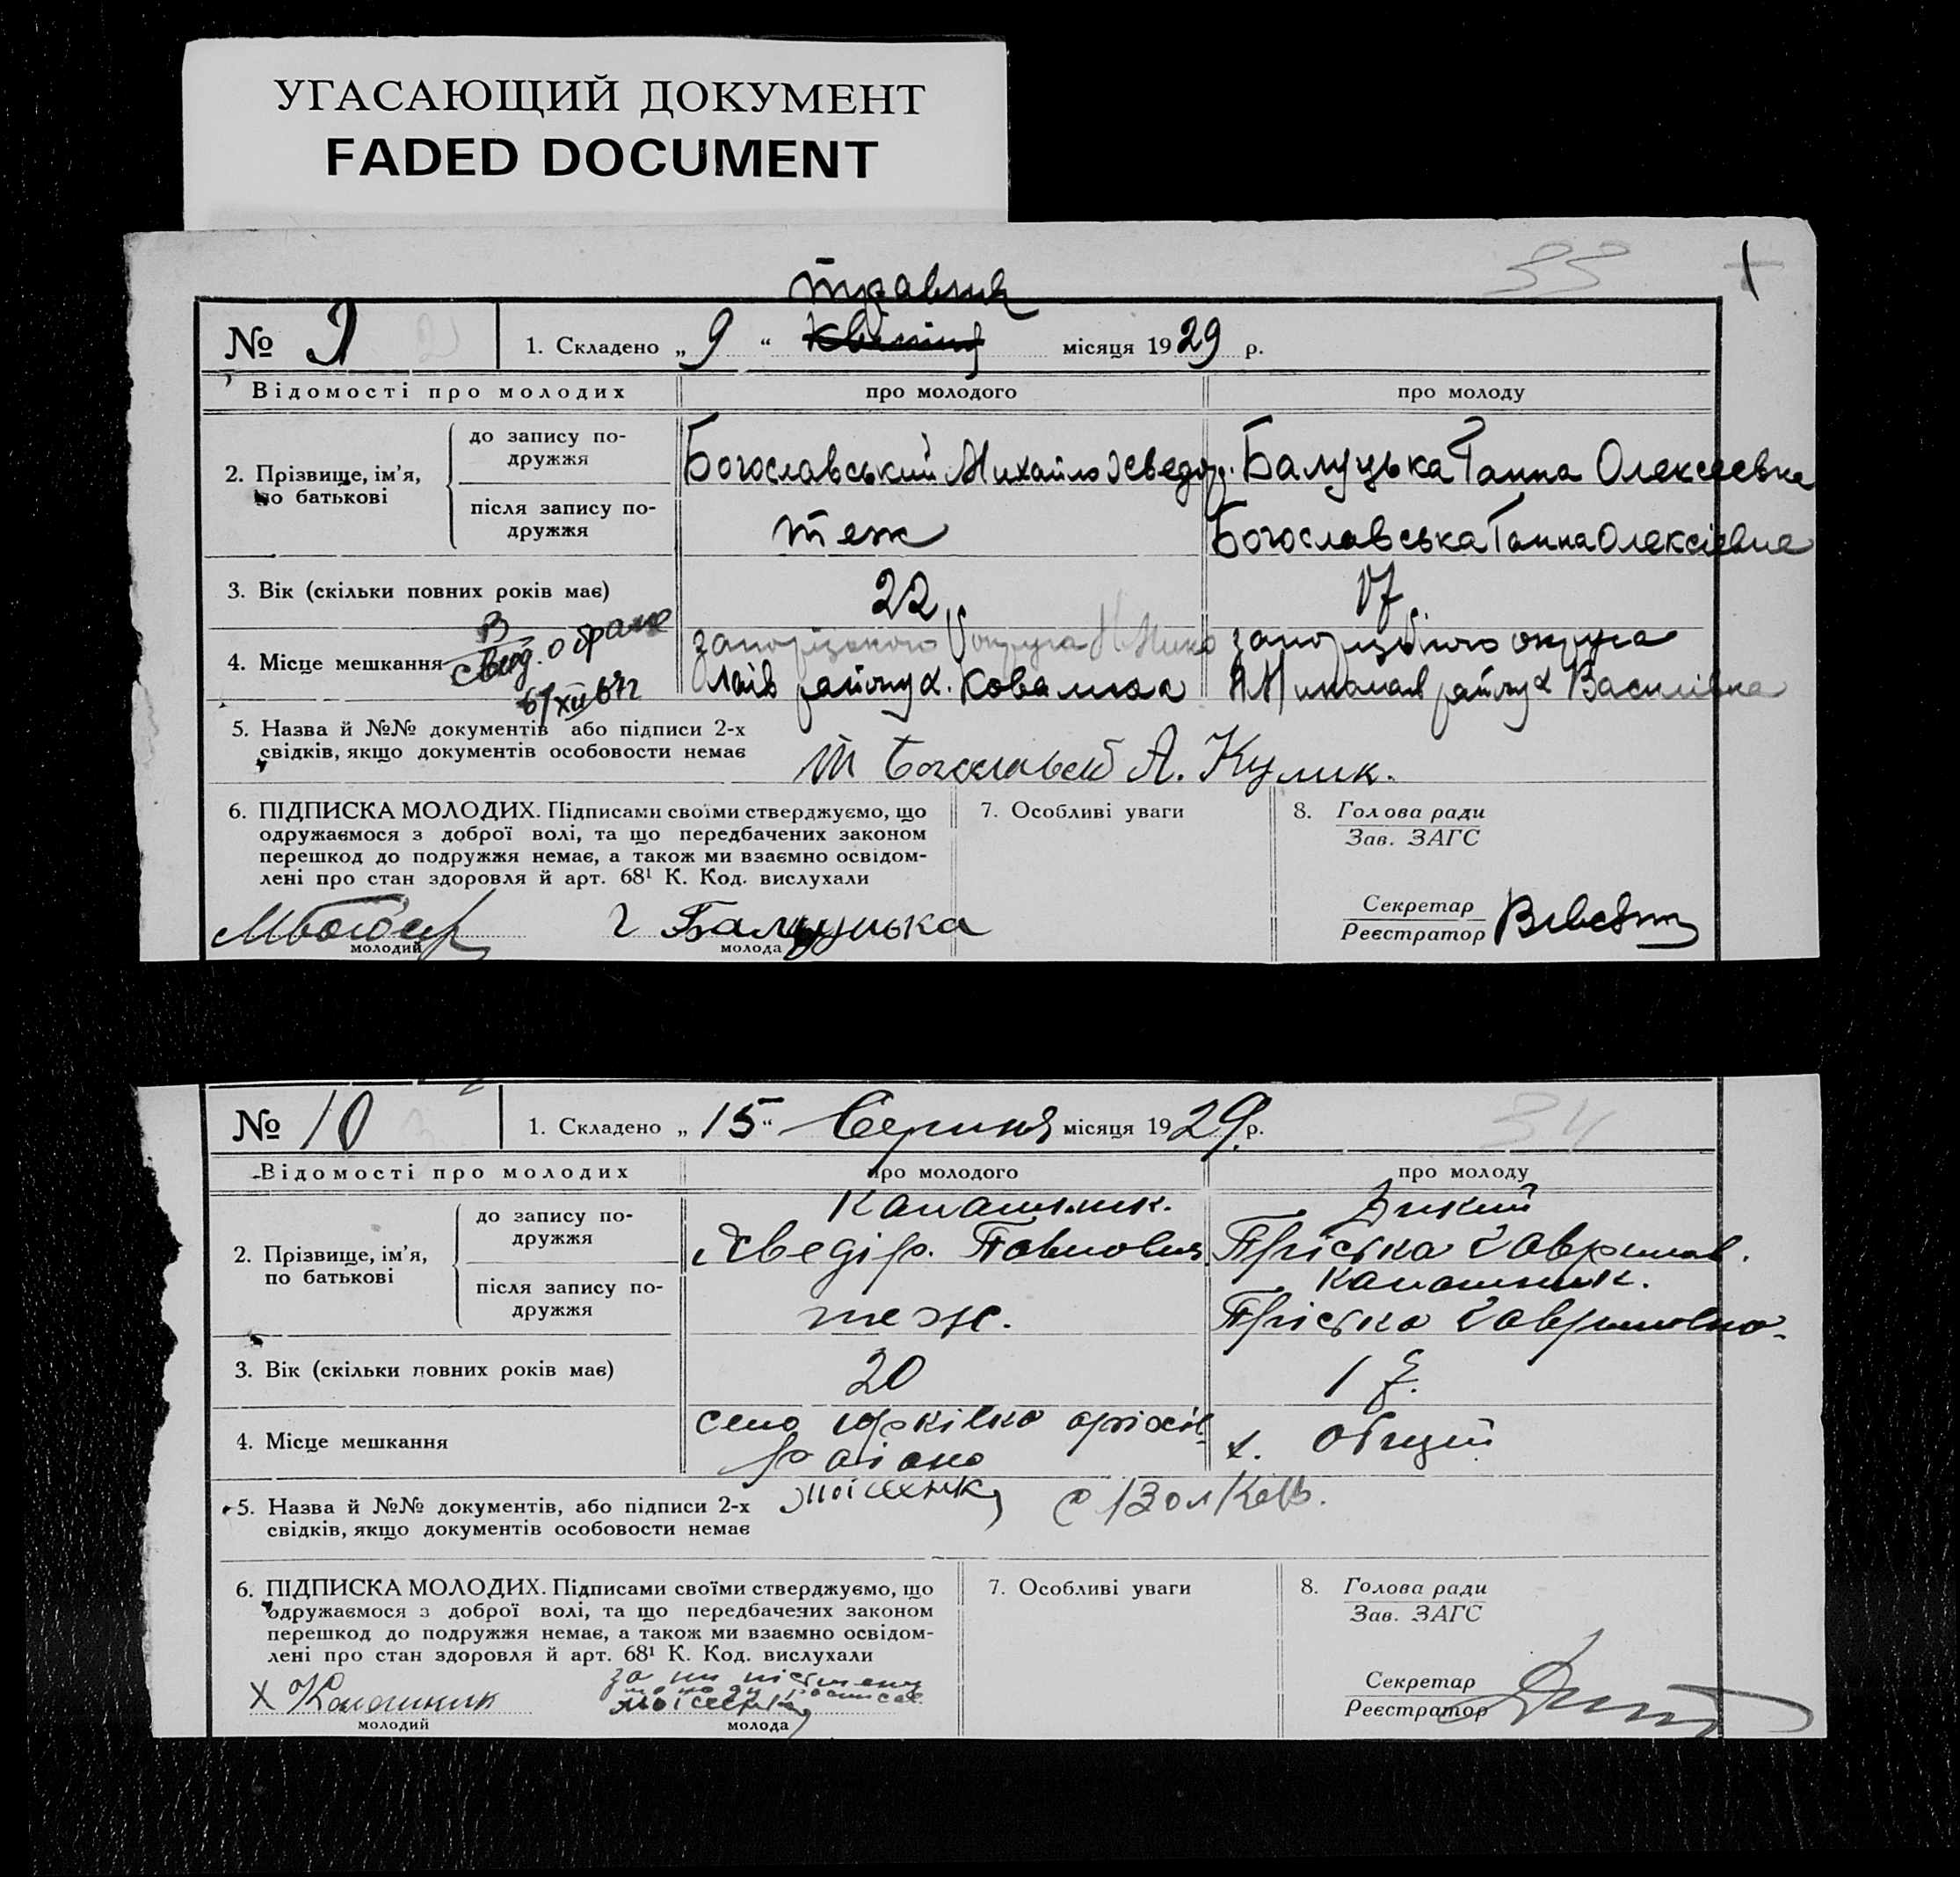 УГАСАЮЩИЙ ДОКУМЕНТ
FADED DOCUMENT
33
травня
№ 9
1. Складено „ 9 “ квітня місяця 1929 р.
Відомості про молодих
про молодого
про молоду
2. Прізвище, ім’я, по батькові
до запису подружжя
Богославський Михайло Хведор.
Балуцька Ганна Олексеевна
після запису подружжя
теж
Богославська Ганна Олексієвна
3. Вік (скільки повних років має)
22
17
4. Місце мешкання
запорізького округа Н Мико
лаїв району х.
запорізького округа
Н Миколаїв району х Василівка
5. Назва й №№ документів або підписи 2-х
свідків, якщо документів особовости немає
А. Кулик.
6. ПІДПИСКА МОЛОДИХ. Підписами своїми стверджуємо, що
одружаємося з доброї волі, та що передбачених законом
перешкод до подружжя немає, а також ми взаємно освідом-
лені про стан здоровля й арт. 68¹ К. Код. вислухали
7. Особливі уваги
8. Голова ради
Зав. ЗАГС
Секретар
Реєстратор
Г Балуцька
молодий
молода
№ 10
1. Складено „ 15 “ Серпня місяця 1929 р.
34
Відомості про молодих
про молодого
про молоду
2. Прізвище, ім’я,
по батькові
до запису по-
дружжя
Калашник.
Хведір. Павлович
Дикий
Пріська Гаврилов.
після запису по-
дружжя
теж.
Калашник.
Пріська Гавриловна.
3. Вік (скільки повних років має)
20
4. Місце мешкання
село Юрківка оріхів
раіона
х.
5. Назва й №№ документів, або підписи 2-х
свідків, якщо документів особовости немає
Моісеенко
6. ПІДПИСКА МОЛОДИХ. Підписами своїми стверджуємо, що
одружаємося з доброї волі, та що передбачених законом
перешкод до подружжя немає, а також ми взаємно освідом-
лені про стан здоровля й арт. 68¹ К. Код. вислухали
7. Особливі уваги
8. Голова ради
Зав. ЗАГС
Секретар
Реєстратор
х Калашник
Моісеенко
молодий
молода